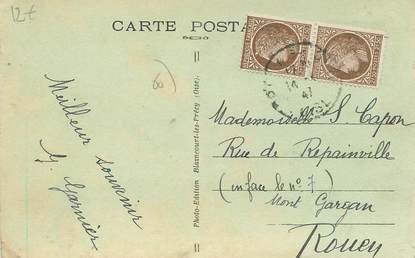 12f
CARTE POSTA
8
Meilleur souvenir
G. Garnier
Photo-Edition Blamecourt-les-Précy (Oise).
14
47
Mademoiselle S. Capon
Rue de Repainville
(in face le n° 7)
Mont Gargan
Rouen